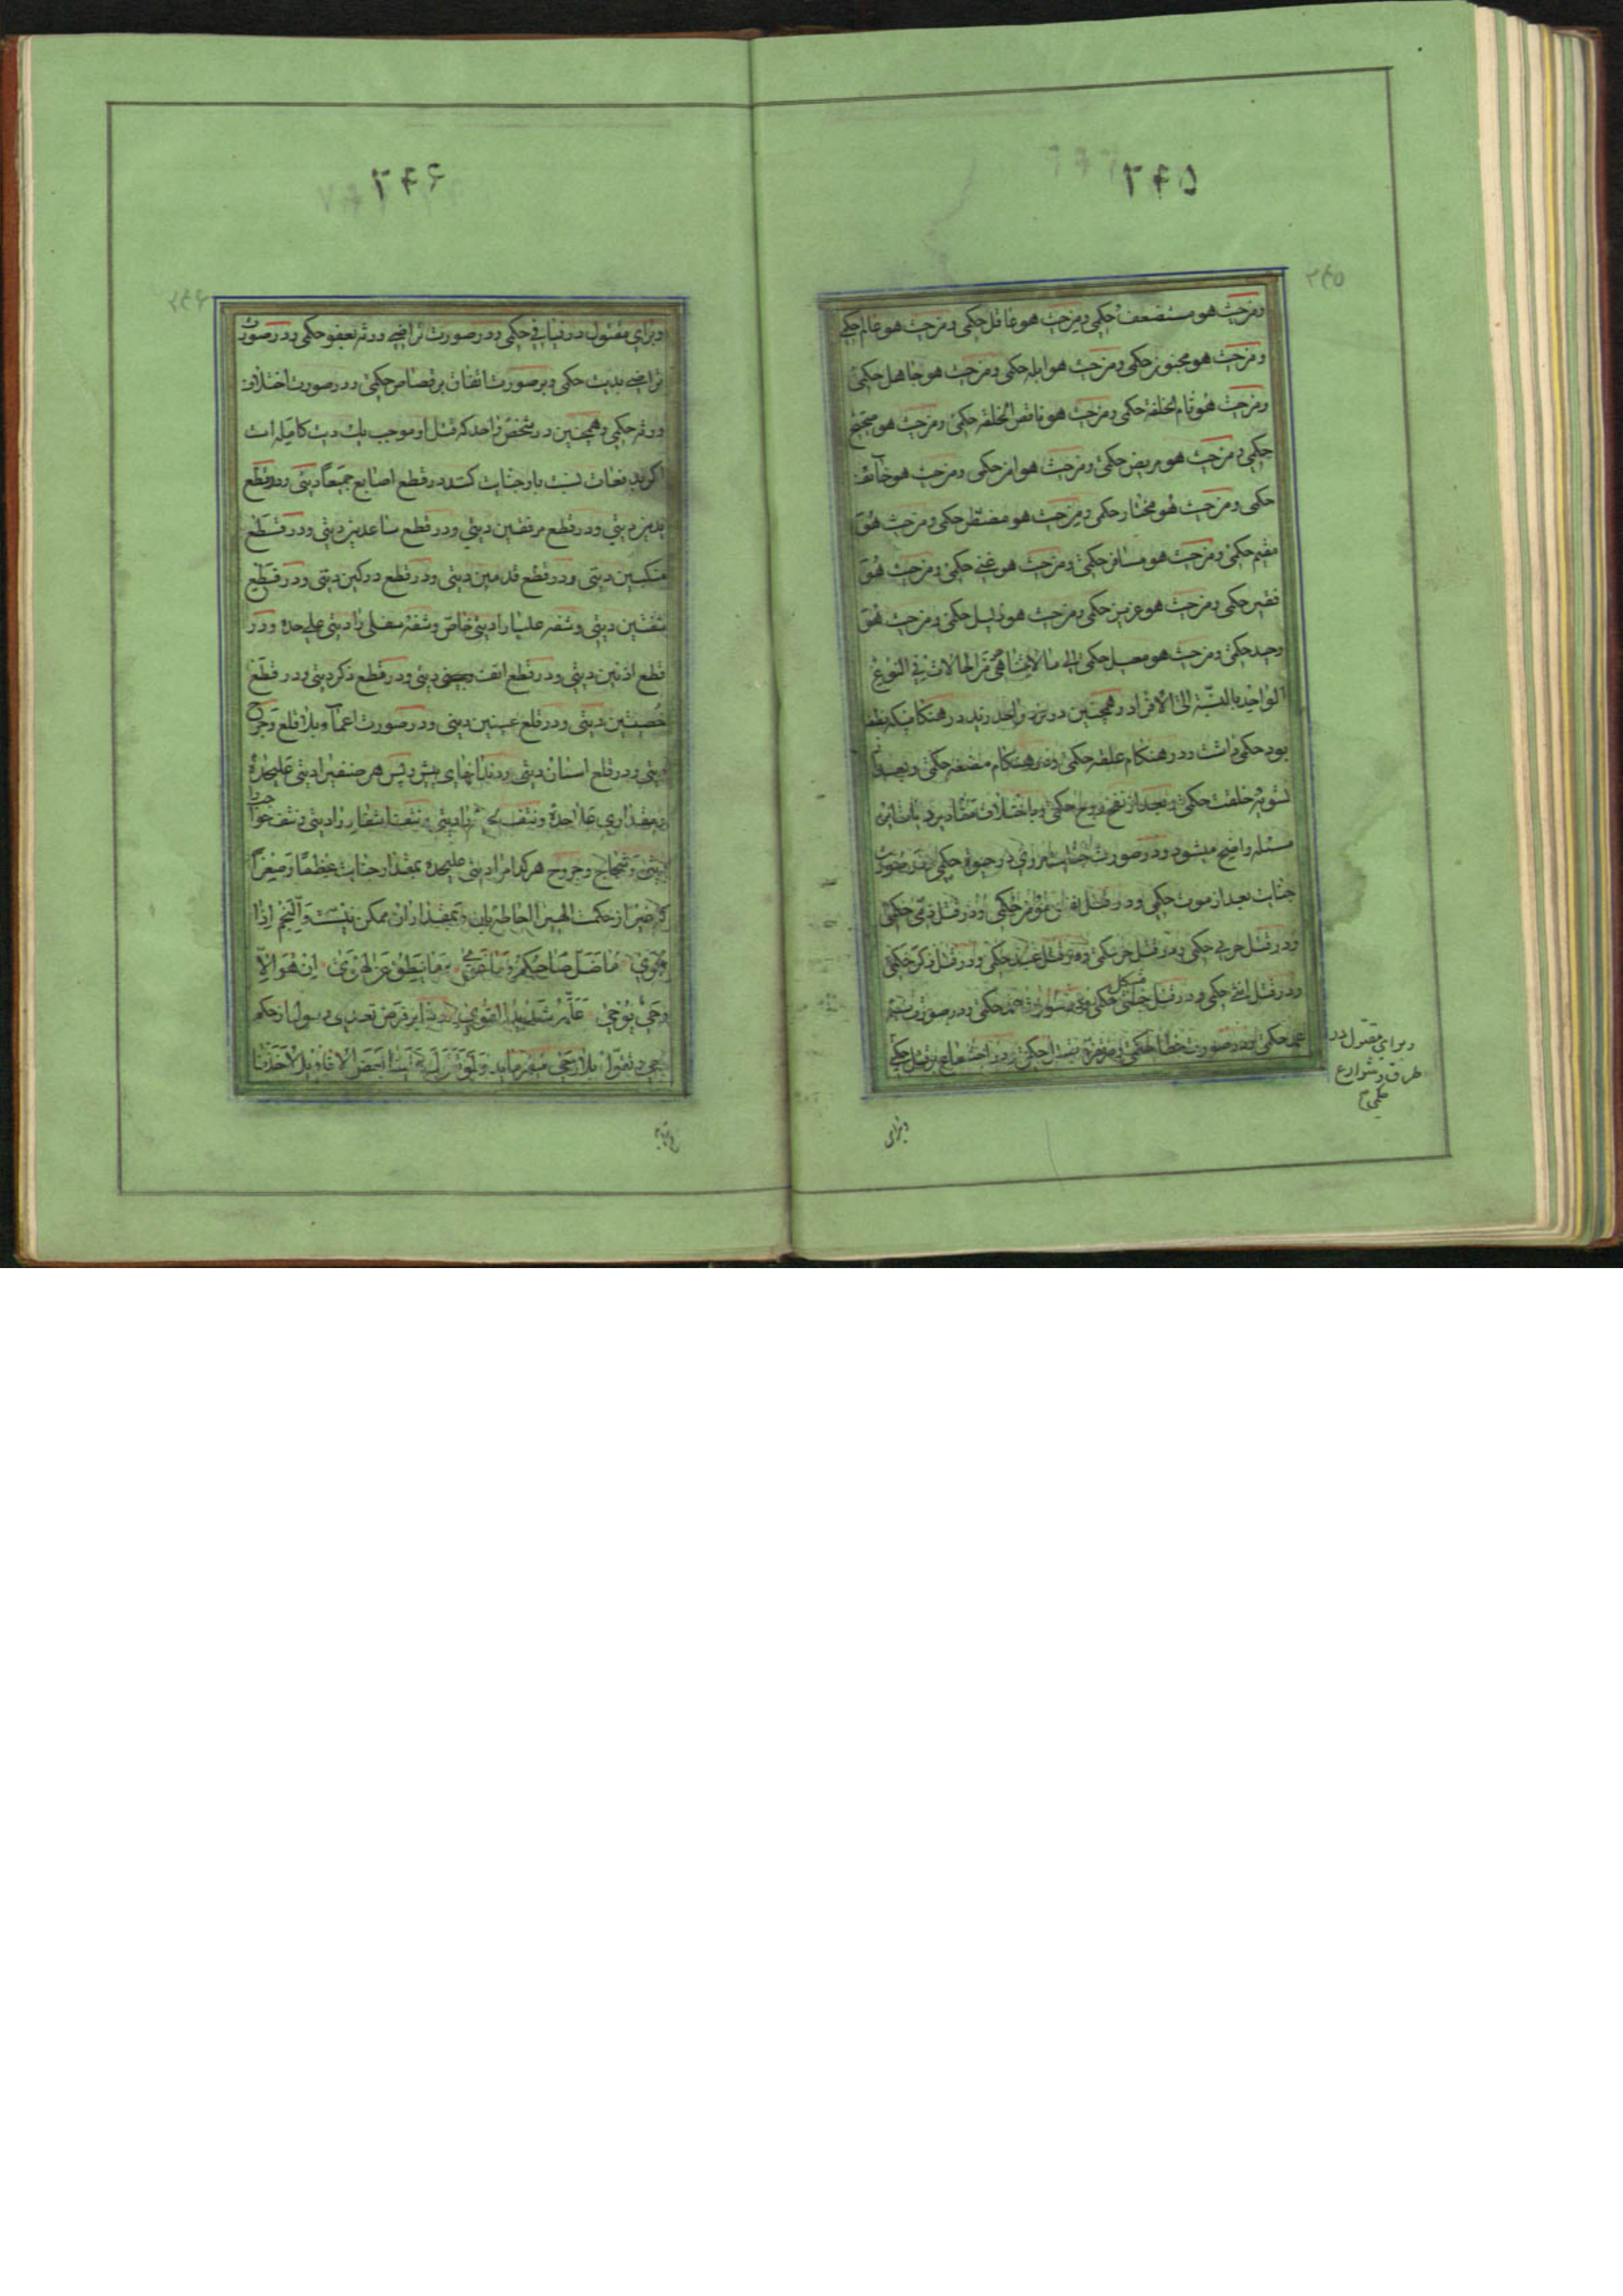 ومن حیث هو مستضعف حکمی ومن حیث هو عاقل حکمی ومن حیث هو عالم حکمی
ومن حیث هو مجنون حکمی ومن حیث هو ابله حکمی ومن حیث هو جاهل حکمی
ومن حیث هو تام الخلقة حکمی ومن حیث هو ناقص الخلقة حکمی ومن حیث هو صحیح
حکمی ومن حیث هو مریض حکمی ومن حیث هو امن حکمی ومن حیث هو خائف
حکمی ومن حیث هو مختار حکمی ومن حیث هو مضطر حکمی ومن حیث هو
مقیم حکمی ومن حیث هو مسافر حکمی ومن حیث هو غنی حکمی ومن حیث هو
فقیر حکمی ومن حیث هو عزیز حکمی ومن حیث هو ذلیل حکمی ومن حیث هو
وحید حکمی ومن حیث هو معیل حکمی الی ما لا یتناهی من الحالات فی النوع
الواحد بالنسبة الی الافراد وهمچنین در فرد واحد زید در هنگامیکه نطفه
بود حکمی داشت ودر هنگام علقه حکمی ودر هنگام مضغه حکمی وبعد از
تسویهٔ خلقت حکمی وبعد از نفخ روح حکمی وباختلاف مقادیر دیات این
مسئله واضح میشود ودر صورت جنایت بر وی در حیوة حکمی ودر صورت
جنایت بعد از موت حکمی ودر قتل نفس مؤمن حکمی ودر قتل ذمی حکمی
ودر قتل حربی حکمی ودر قتل حر حکمی ودر قتل عبد حکمی ودر قتل ذکر حکمی
ودر قتل انثی حکمی ودر قتل خنثی مشکل حکمی ودر صورت عمد حکمی ودر صورت شبیه
عمد حکمی ودر صورت خطا حکمی ودر تفرد بقتل حکمی ودر اجتماع بر قتل حکمی
وبرای مقتول در
طرق وشوارع
حکمی
وبرای
وبرای مقتول در فیافی حکمی ودر صورت تراضی ورثه بعفو حکمی ودر صورت
تراضی بدیت حکمی ودر صورت اتفاق بر قصاص حکمی ودر صورت اختلاف
ورثه حکمی وهمچنین در شخص واحد که قتل او موجب یك دیت کامله است
اگر بدفعات نسبت باو جنایت کنند در قطع اصابع جمیعاً دیتی ودر قطع
یدین دیتی ودر قطع مرفقین دیتی ودر قطع ساعدین دیتی ودر قطع
منکبین دیتی ودر قطع قدمین دیتی ودر قطع درکین دیتی ودر قطع
شفتین دیتی وشفه علیا را دیتی خاص وشفه سفلی را دیتی علی حده ودر
قطع اذنین دیتی ودر قطع انف دیتی ودر قطع ذکر دیتی ودر قطع
خصیتین دیتی ودر قلع عینین دیتی ودر صورت اعما بلا قلع وجرح
دیتی ودر قلع اسنان دیتی ودندانهای پیش وپس هر صنفیرا دیتی علیحده
بمقداری علاحدة ونتف را دیتی ونتف اشفار را دیتی ونتف حواجب را
دیتی وشجاج وجروح هر کدام را دیتی علیحده بمقدار جنایت عظیماً وصغیراً
که غیر از حکمت الهیه احاطه بان وبمقدار ان ممکن نیست والنجم اذا
هوی ما ضل صاحبکم وما غوی وما ینطق عن الهوی ان هو الا
وحی یوحی علمه شدید القوی
ولو تقول علینا بعض الاقاویل لاخذنا